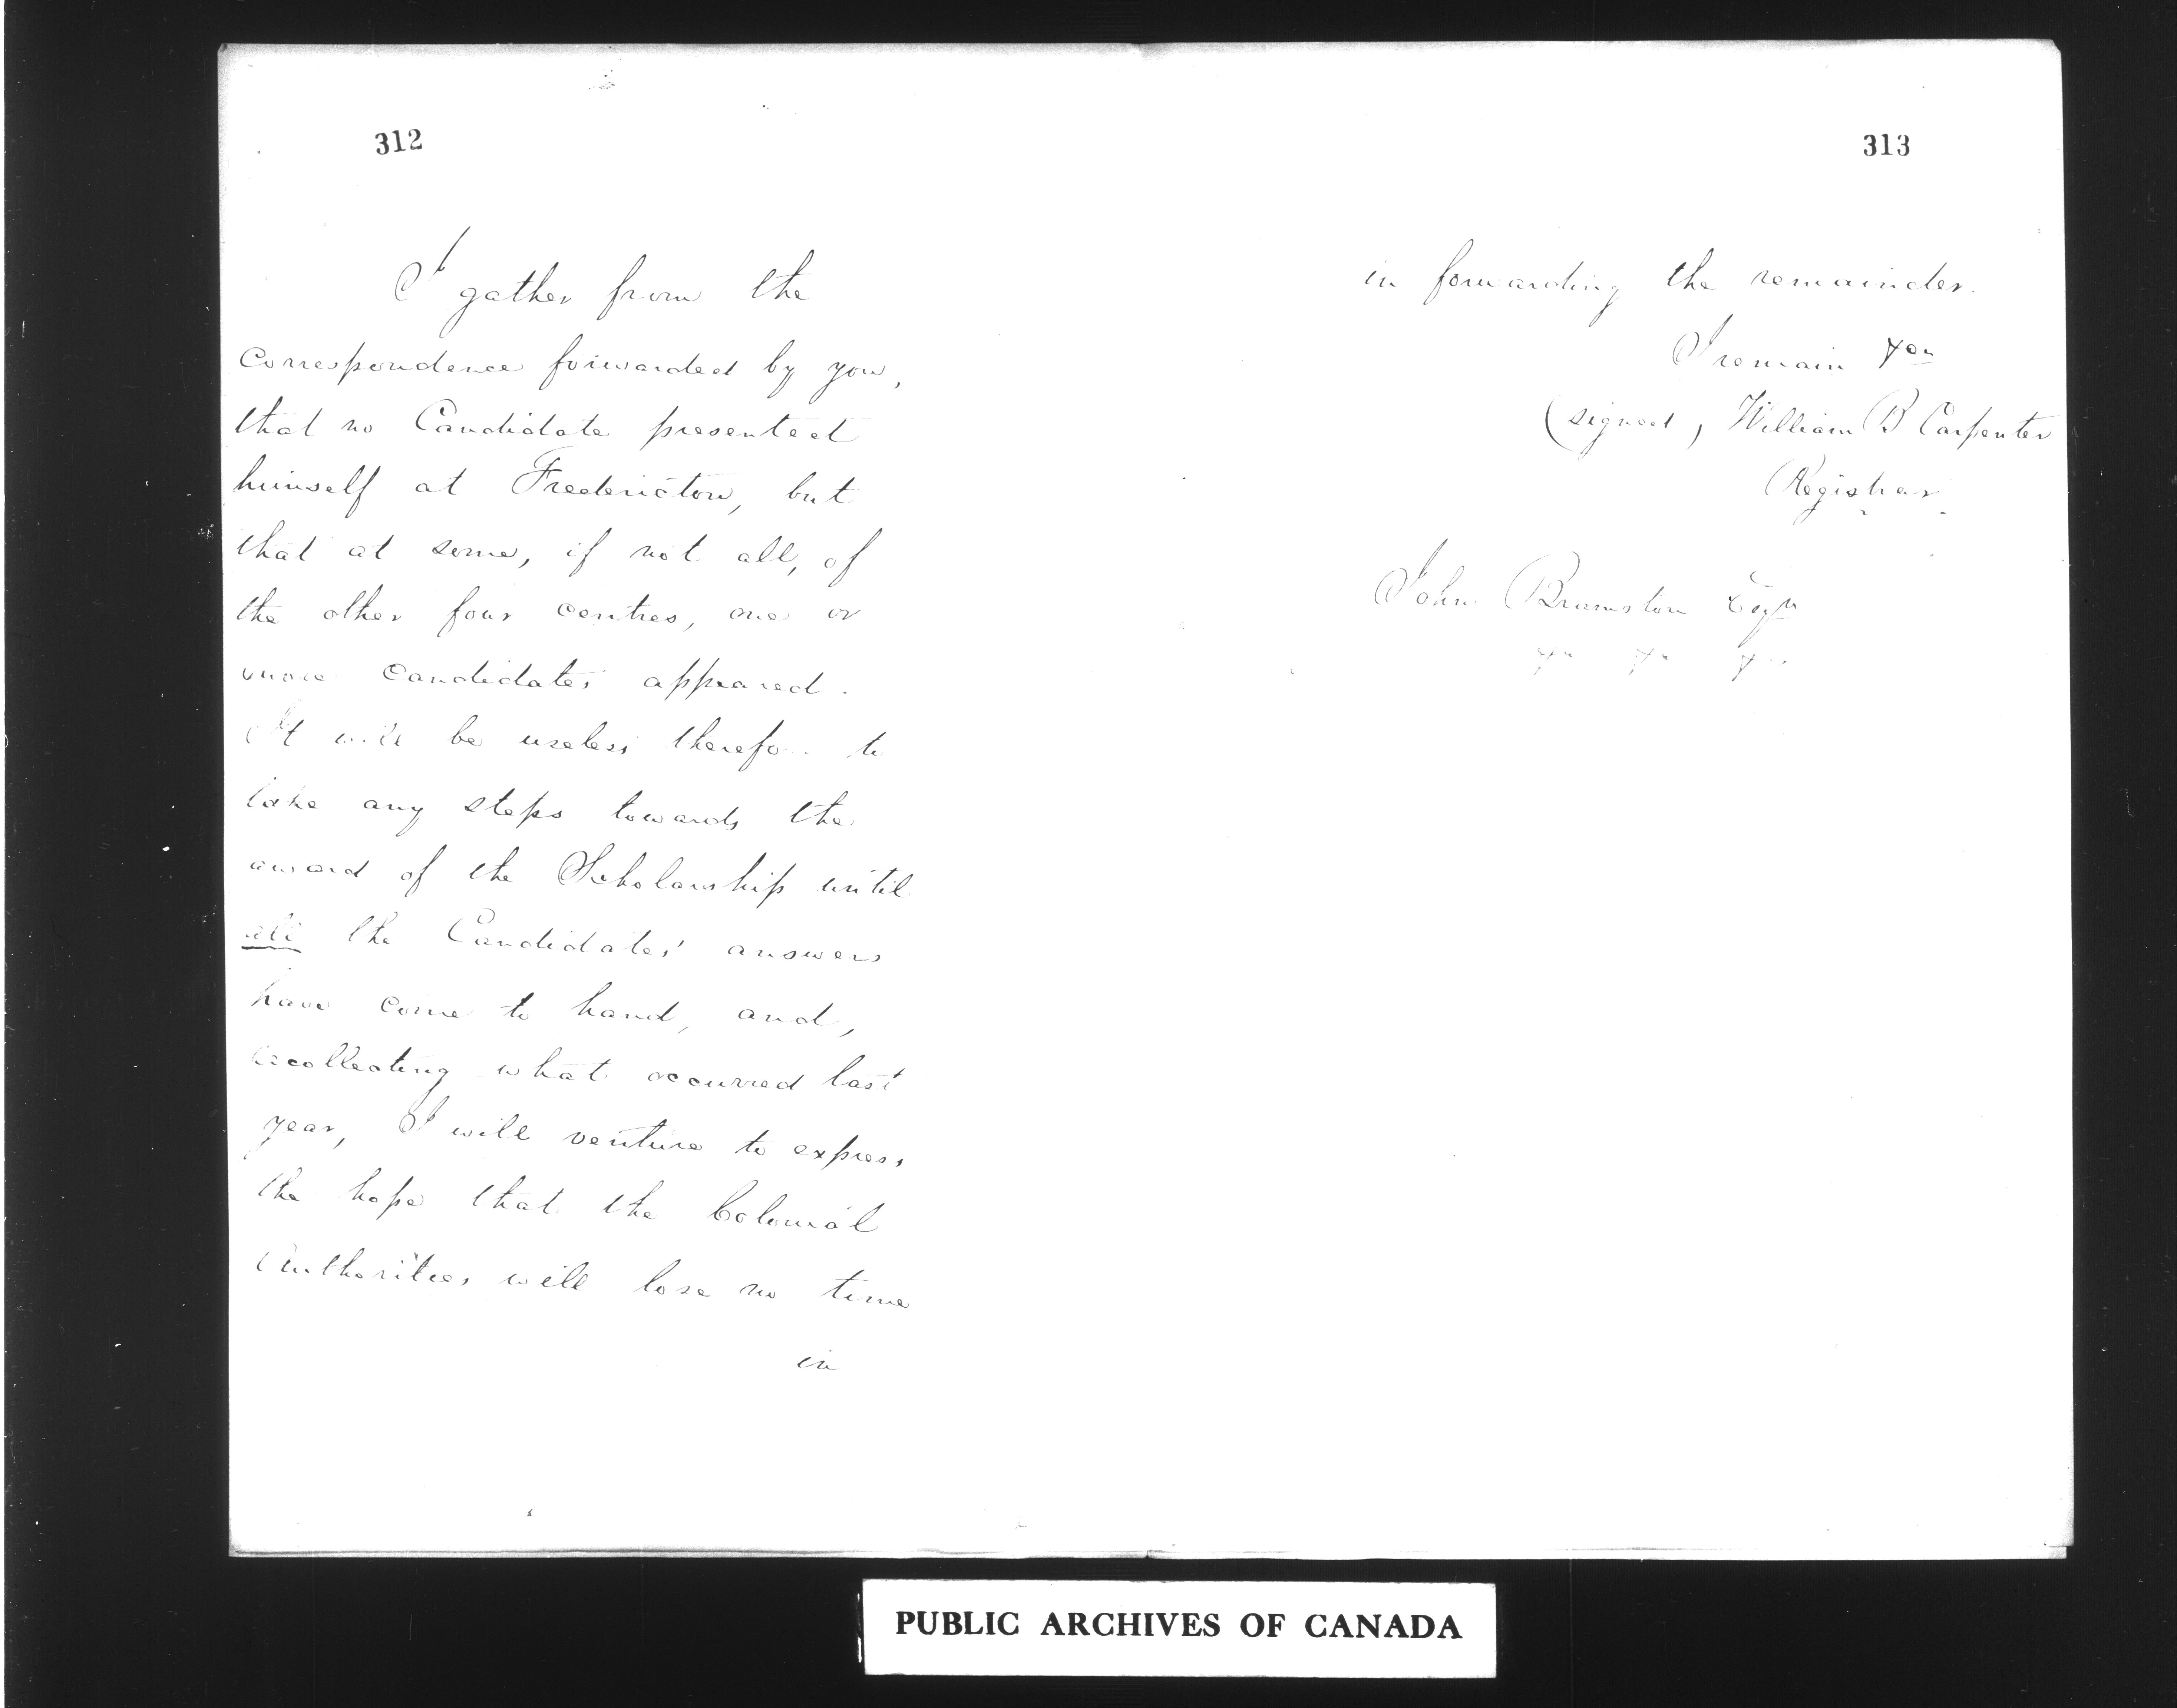 312
I gather from the
Correspondence forwarded by you,
that no Candidate presented
himself at Fredericton, but
that at some, if not all, of
the other four centres, one or
more candidates appeared.
It will be useless therefo.. to
take any steps towards the
award of the Scholarship until
all the Candidates' answers
have come to hand, and,
recollecting what occurred last
year, I will venture to express
the hope that the Colonial
Authorities will lose no time
in
313
in forwarding the remainder.
I remain &ca
(signed) William B Carpenter
Registrar.
John Bramston Esqre
&c &c &c
PUBLIC ARCHIVES OF CANADA